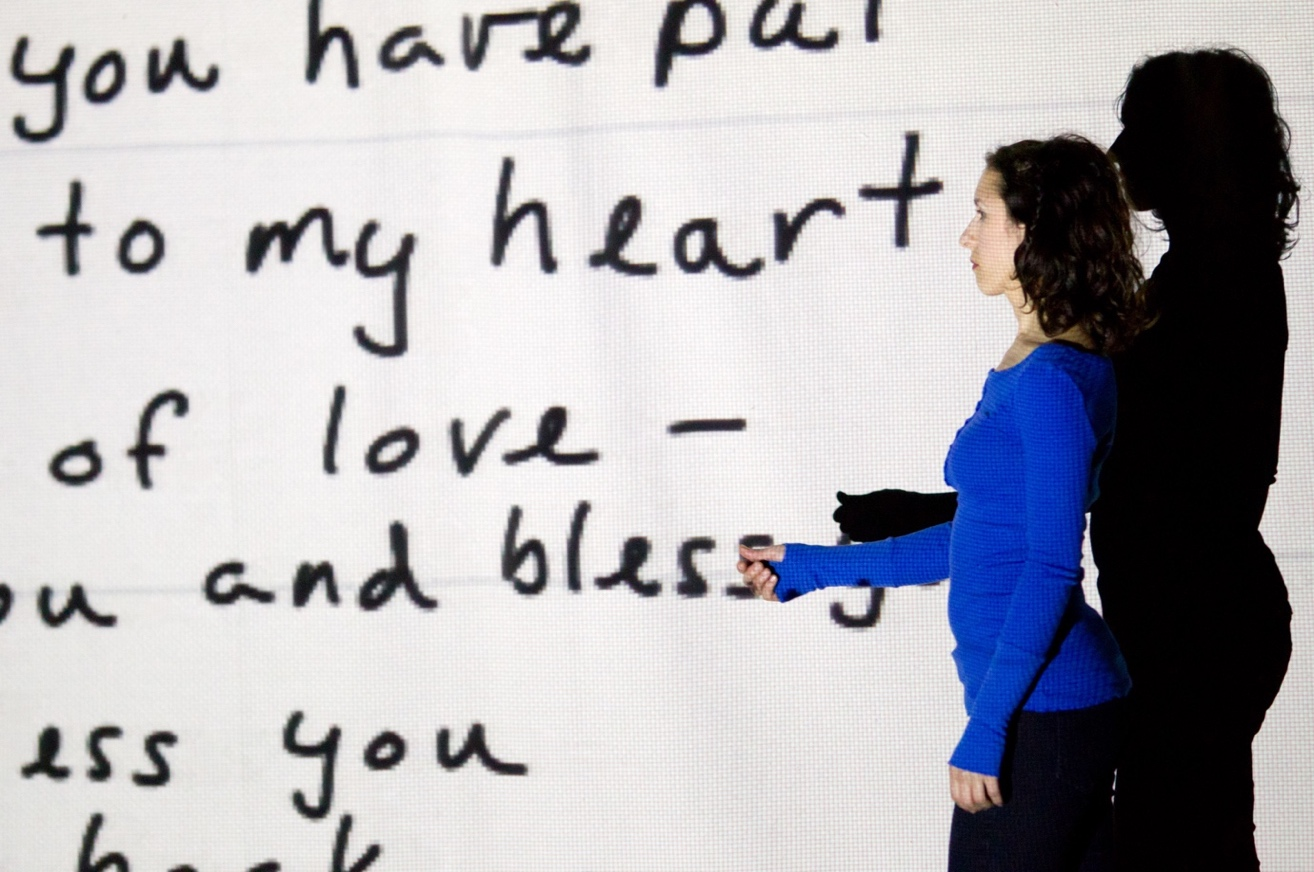 you have put
to my heart
of love –
ou and bless y
ess you